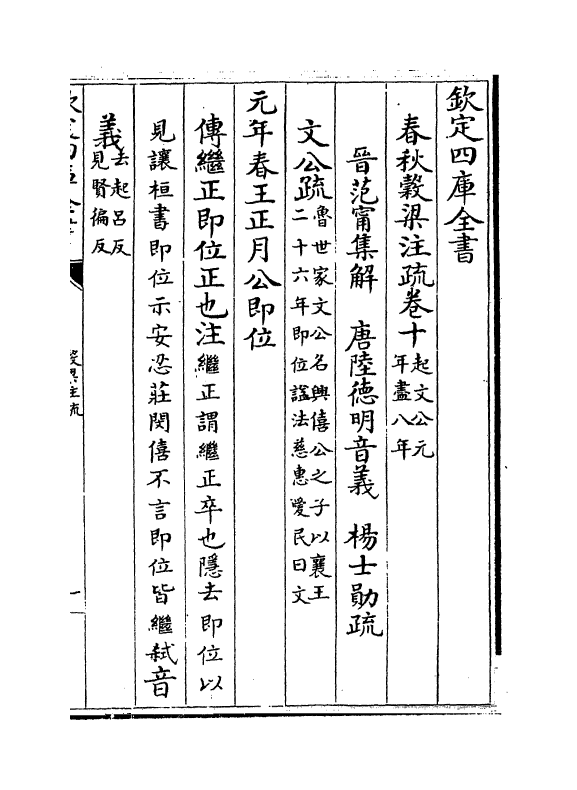 欽定四庫全書
春秋穀梁注疏卷十起文公元年盡八年
晉范甯集解　唐陸德明音義　楊士勛疏
文公疏魯世家文公名興僖公之子以襄王二十六年即位諡法慈惠愛民曰文
元年春王正月公即位
傳繼正即位正也注繼正謂繼正卒也隱去即位以
見讓桓書即位示安忍莊閔僖不言即位皆繼弑音
義去起呂反見賢徧反